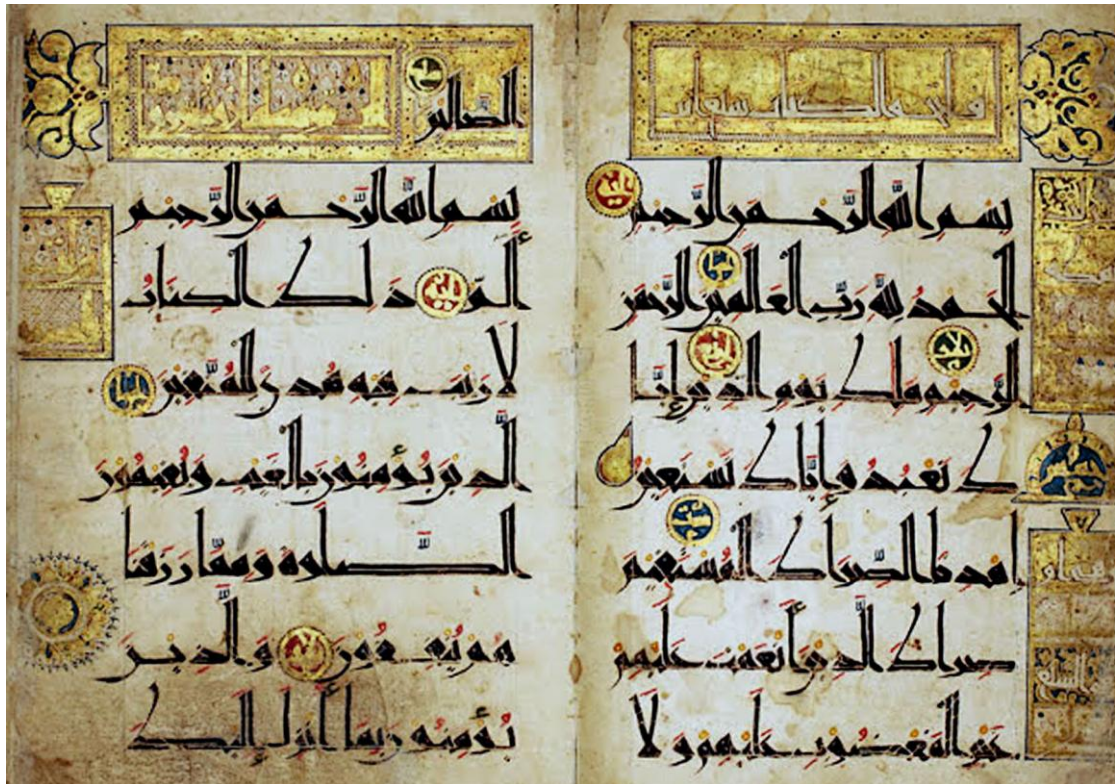 فاتحة الكتاب سبع آيات
بسم الله الرحمن الرحيم
الحمد لله رب العالمين الرحمن
الرحيم ملك يوم الدين إيا
ك نعبد وإياك نستعين
اهدنا الصراط المستقيم
صراط الذين أنعمت عليهم
غير المغضوب عليهم ولا
الضالين
بسم الله الرحمن الرحيم
ألم ذلك الكتاب
لا ريب فيه هدى للمتقين
الذين يؤمنون بالغيب ويقيمون
الصلوة ومما رزقنا
هم ينفقون والذين
يؤمنون بما أنزل إليك